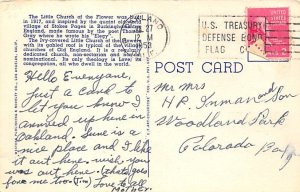 The Little Church of the Flower was built
in 1917, and inspired by the quaint old
village of Stokes Poges in Buckinghamshire,
England, made famous by the poet Thomas
Gray where he wrote his "Elegy".
The ivy-covered Little Church of the Flowers
with its gabled roof is typical of the village
churches of Old England. It is a regularly
dedicated church, non-sectarian and non-de-
nominational. Its only theology is Love; its
congregations, all who dwell in the world.
LAND
27
M
1953
U.S. TREASURY
DEFENSE BOND
FLAG
POST CARD
Hello Everyone,
Just a card to
let you know I
arrived up here in
Oakland. June is a
nice place and I like
it out here. wish you
was out here. (thats goes
for me too Tim) Love to all
Mother
Mr Mrs
H P. Inman and Son
Woodland Park
Colorado